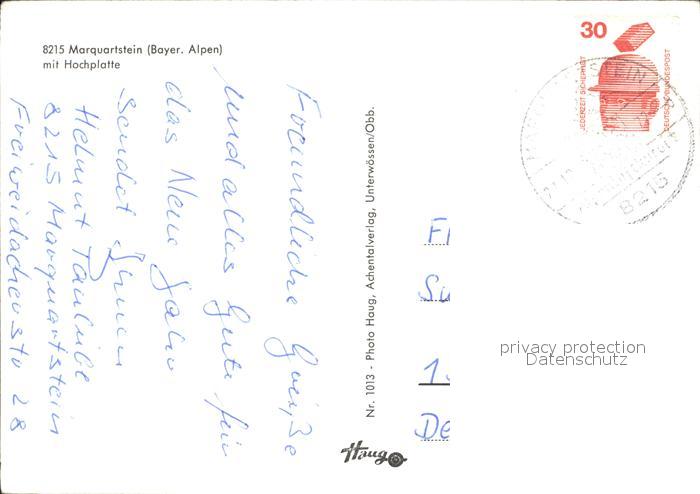 8215 Marquartstein (Bayer. Alpen)
mit Hochplatte
Freundliche Grüße
und alles Gute für
das Neue Jahr
sendet Ihnen
Helmut
8215 Marquartstein
Freiweidacherstr 28
Nr. 1013 - Photo Haug, Achentalverlag, Unterwössen/Obb.
Haug
30
JEDERZEIT SICHERHEIT
DEUTSCHE BUNDESPOST
8215
Fr
Su
1
De
privacy protection
Datenschutz